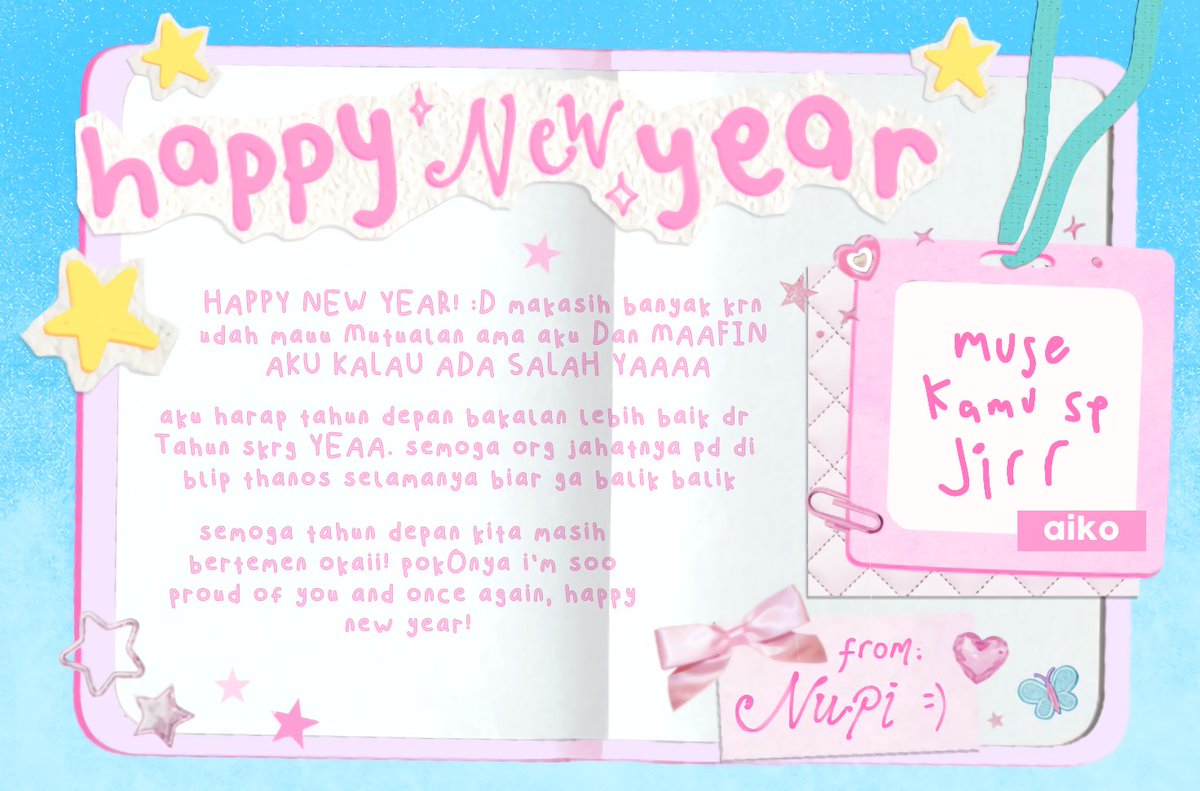 happy New year
HAPPY NEW YEAR! :D makasih banyak krn
udah mauu Mutualan ama aku Dan MAAFIN
AKU KALAU ADA SALAH YAAAA
aku harap tahun depan bakalan lebih baik dr
Tahun skrg YEAA. semoga org jahatnya pd di
blip thanos selamanya biar ga balik balik
semoga tahun depan kita masih
bertemen okaii! pokOnya i'm soo
proud of you and once again, happy
new year!
muse
kamu sp
Jirr
aiko
from:
Nupi =)